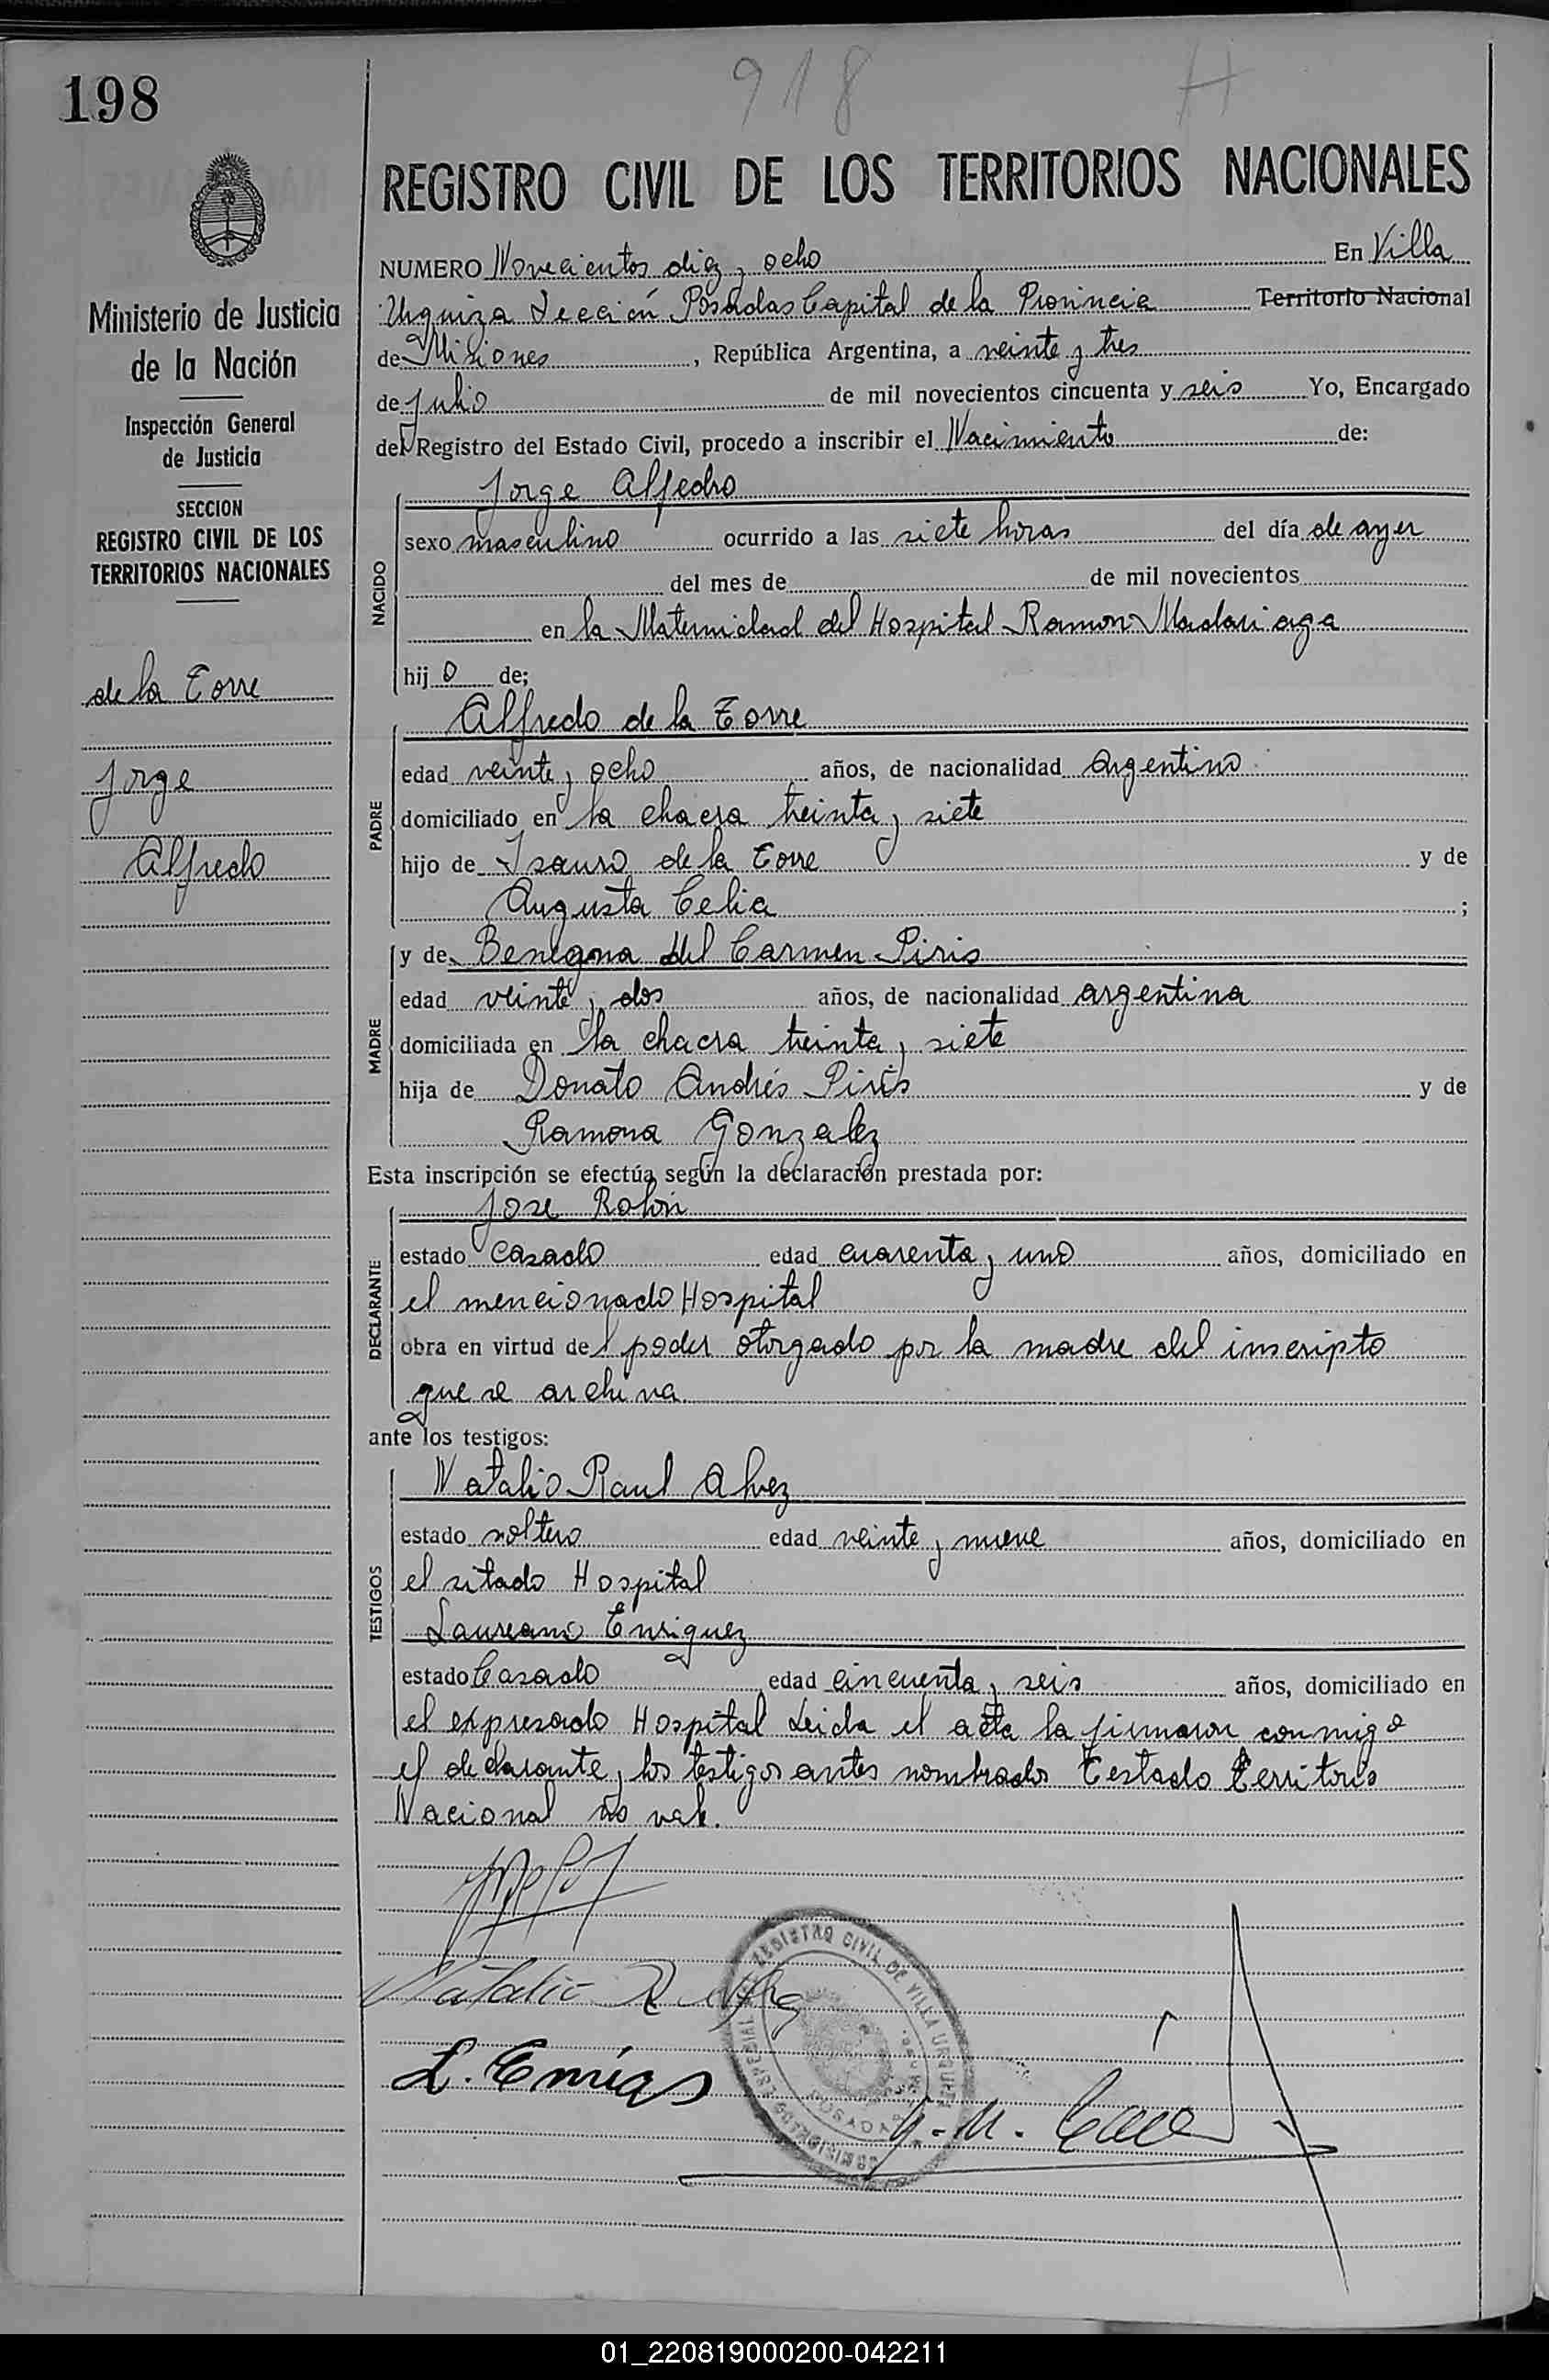 918 H
198
REGISTRO CIVIL DE LOS TERRITORIOS NACIONALES
Ministerio de Justicia
de la Nación
Inspección General
de Justicia
SECCION
REGISTRO CIVIL DE LOS
TERRITORIOS NACIONALES
de la Torre
Jorge
Alfredo
NUMERO Novecientos diez y ocho En Villa
Urquiza Sección Posadas Capital de la Provincia Territorio Nacional
de Misiones, República Argentina, a veinte y tres
de julio de mil novecientos cincuenta y seis Yo, Encargado
del Registro del Estado Civil, procedo a inscribir el Nacimiento de:
NACIDO
Jorge Alfedro
sexo masculino ocurrido a las siete horas del día de ayer
del mes de de mil novecientos
en la Maternidad del Hospital Ramon Madariaga
hij o de;
PADRE
Alfredo de la Torre
edad veinte y ocho años, de nacionalidad argentino
domiciliado en la chacra treinta y siete
hijo de Isauro de la Torre y de
Augusta Celia ;
MADRE
y de Benigna del Carmen Piris
edad veinte y dos años, de nacionalidad argentina
domiciliada en la chacra treinta y siete
hija de Donato Andrés Piris y de
Ramona Gonzalez
Esta inscripción se efectúa según la declaración prestada por:
DECLARANTE
Jose Rolón
estado casado edad cuarenta y uno años, domiciliado en
el mencionado Hospital
obra en virtud del poder otorgado por la madre del inscripto
que se archiva.
ante los testigos:
TESTIGOS
Natalio Raul Alvez
estado soltero edad veinte y nueve años, domiciliado en
el sitado Hospital
Laureano Enriquez
estado Casado edad cincuenta y seis años, domiciliado en
el expresado Hospital Leida el acta la firmaron conmigo
el declarante y los testigos antes nombrados Testado Territorio
Nacional no vale.
Natalio R
REGISTRO CIVIL DE VILLA URQUIZA
POSADAS
01_220819000200-042211